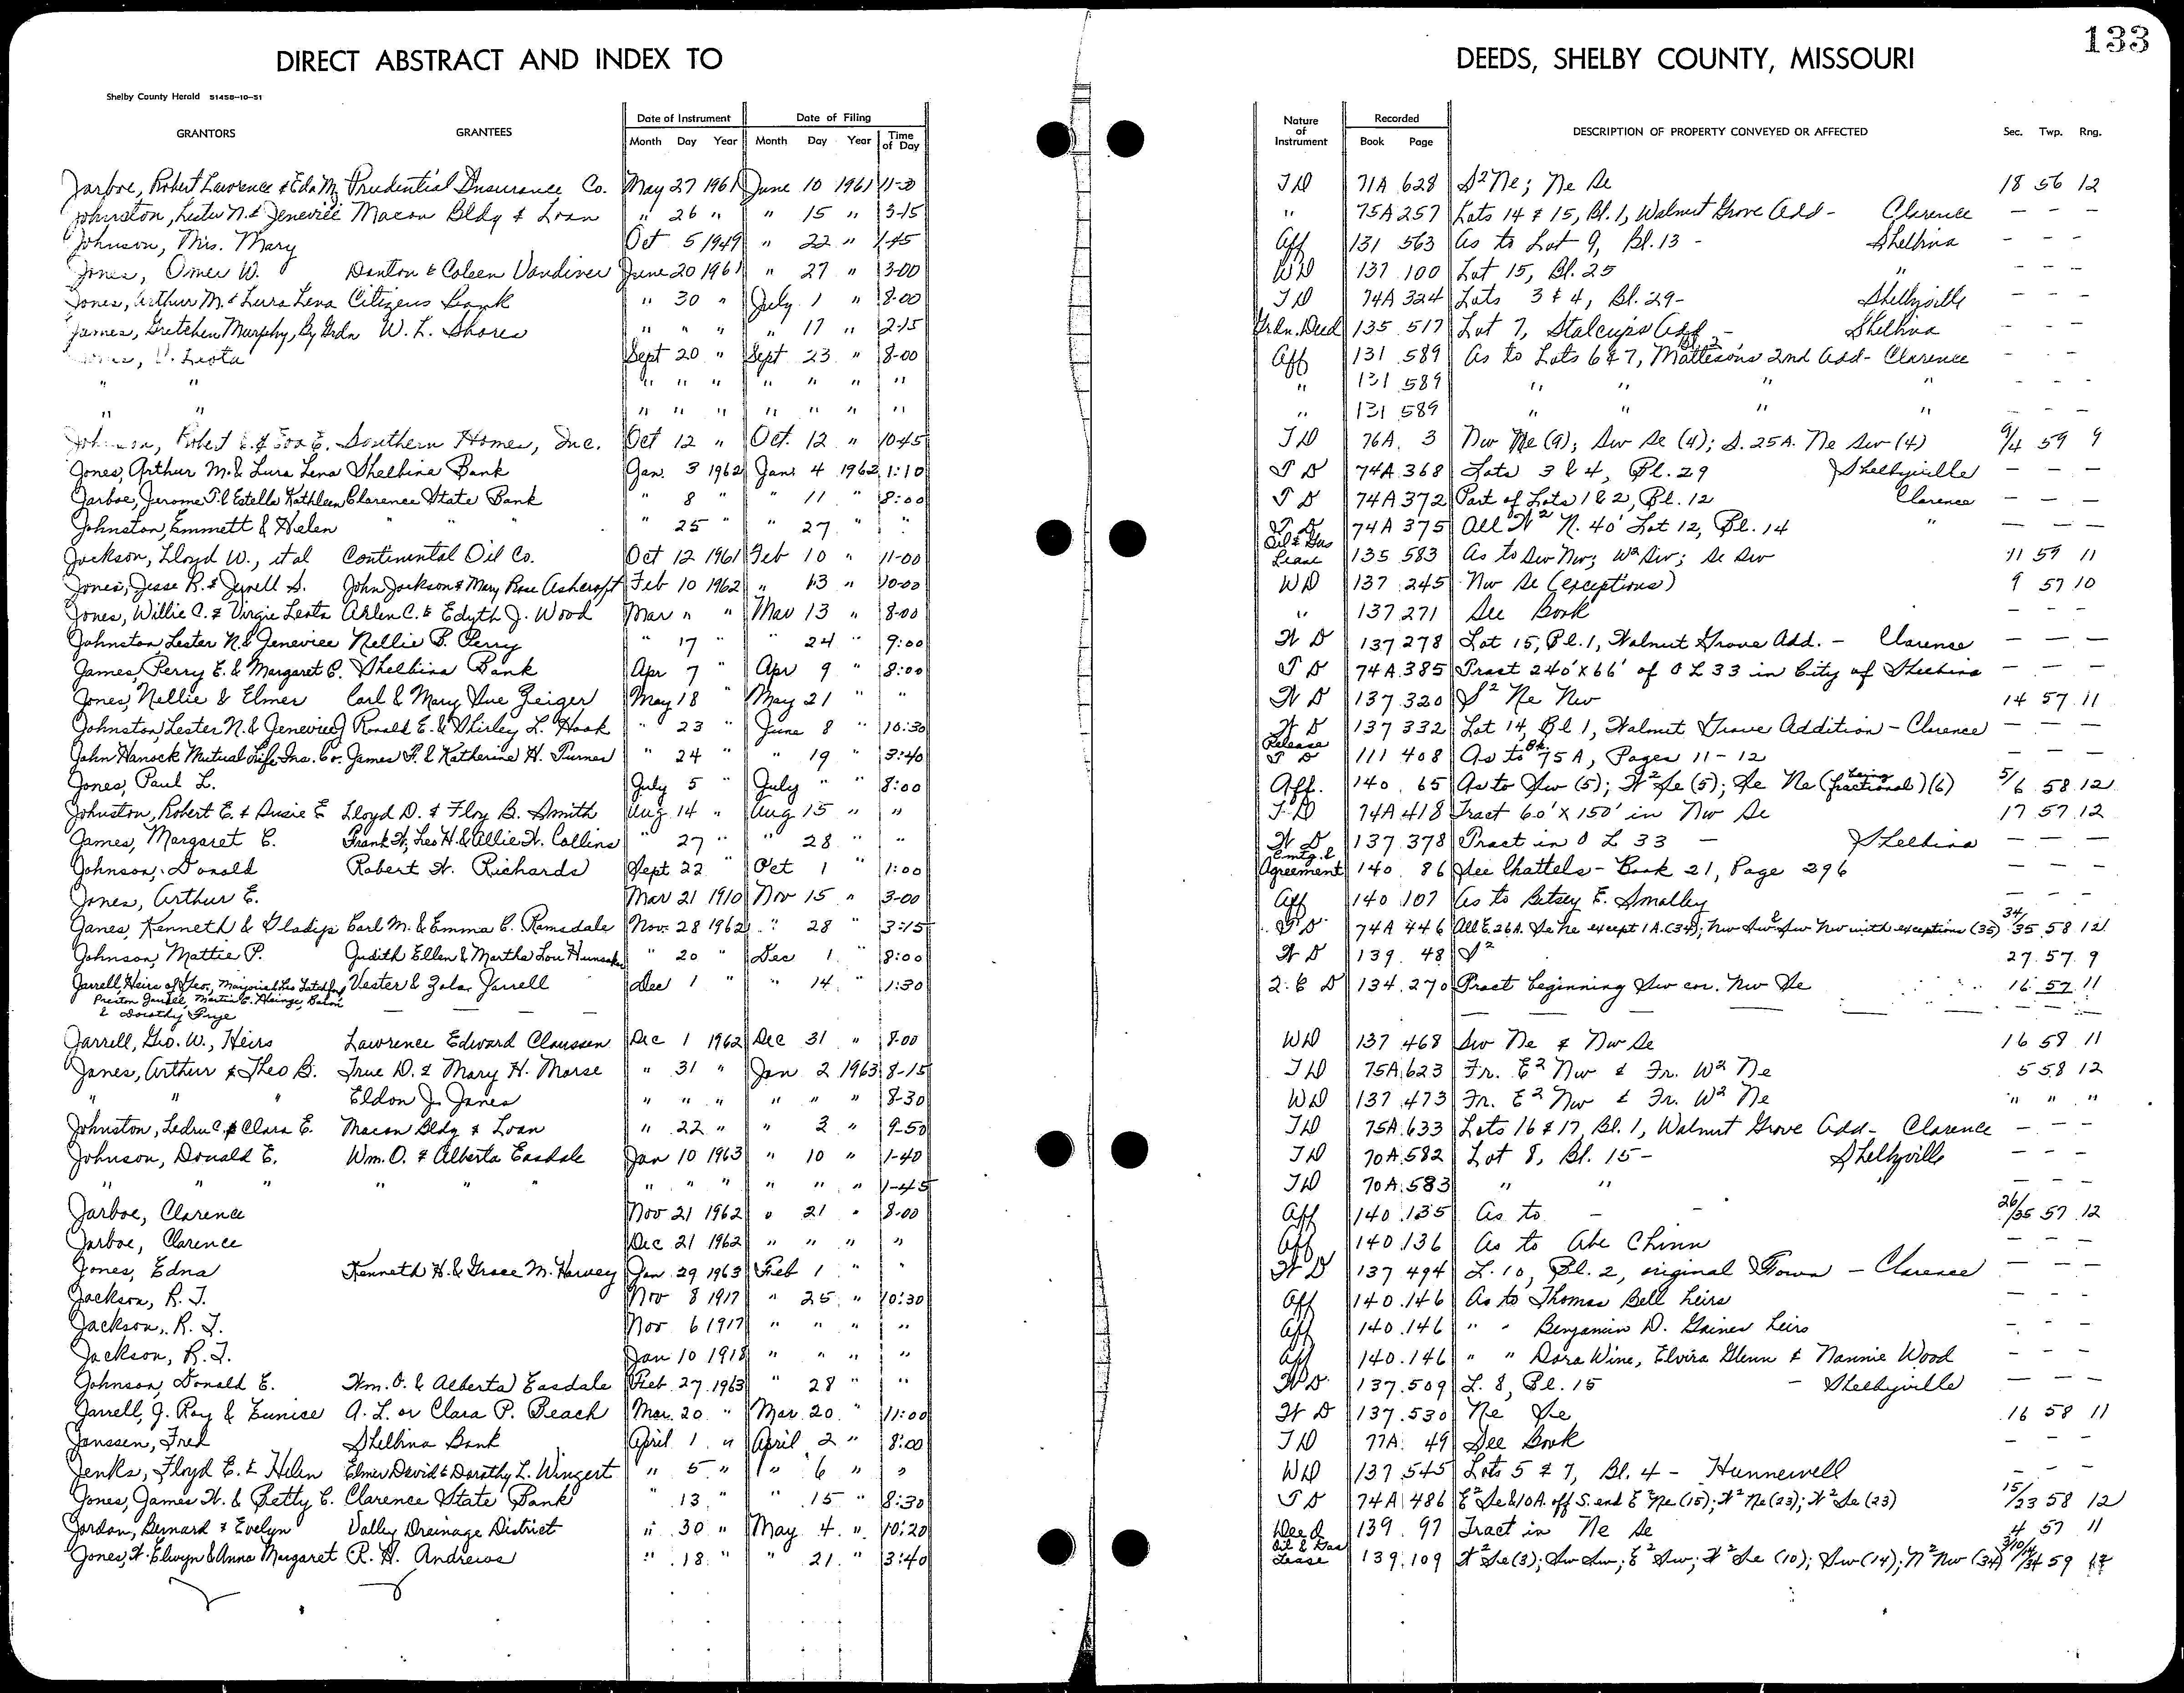 133
DIRECT ABSTRACT AND INDEX TO DEEDS, SHELBY COUNTY, MISSOURI
Shelby County Herald 51458-10-51
Date of Instrument Date of Filing Nature of Instrument Recorded
GRANTORS GRANTEES Month Day Year Month Day Year Time of Day Book Page DESCRIPTION OF PROPERTY CONVEYED OR AFFECTED Sec. Twp. Rng.
Jarboe, Robert Lawrence & Eda M. Prudential Insurance Co. May 27 1961 June 10 1961 11-30 TD 71A 628 S² Ne; Ne Se 18 56 12
Johnston, Lester N. & Jenevice Macon Bldg & Loan " 26 " " 15 " 3-15 " 75A 257 Lots 14 & 15, Bl. 1, Walnut Grove Add - Clarence - - -
Johnson, Mrs. Mary Oct 5 1949 " 22 " 1-45 Aff 131 563 As to Lot 9, Bl. 13 - Shelbina - - -
Jones, Omer W. Danton & Coleen Vandiver June 20 1961 " 27 " 3-00 WD 137 100 Lot 15, Bl. 25 " - - -
Jones, Arthur M. & Lura Lena Citizens Bank " 30 " July 1 " 8-00 TD 74A 324 Lots 3 & 4, Bl. 29 - Shelbyville - - -
James, Gretchen Murphy, By Grdn W. L. Shores " " " " 17 " 2-15 Grdn. Deed 135 517 Lot 7, Stalcup's Add - Shelbina - - -
Leota Sept 20 " Sept 23 " 8-00 Aff 131 589 As to Lots 6 & 7, Bl. 2 Mattison's 2nd Add - Clarence - - -
" " " " " " " " " " 131 589 " " " " - - -
" " " " " " " " " " 131 589 " " " " - - -
Johnson, Robert E. & Southern Homes, Inc. Oct 12 " Oct. 12 " 10-45 TD 76A 3 Nw Ne (9); Sw Se (4); S. 25A. Ne Sw (4) 9/4 59 9
Jones, Arthur M. & Lura Lena Shelbina Bank Jan. 3 1962 Jan. 4 1962 1:10 T D 74A 368 Lots 3 & 4, Bl. 29 Shelbyville - - -
Jarboe, Jerome T. & Estella Kathleen Clarence State Bank " 8 " " 11 " 8:00 T D 74A 372 Part of Lots 1 & 2, Bl. 12 Clarence - - -
Johnston, Emmett & Helen " " " " 25 " " 27 " T D 74A 375 All W² N. 40' Lot 12, Bl. 14 " - - -
Jackson, Lloyd W., et al Continental Oil Co. Oct 12 1961 Feb 10 " 11-00 Oil & Gas Lease 135 583 As to Sw Nw; W² Sw; Se Sw 11 59 11
Jones, Jesse R. & Jewell S. John Jackson & Mary Rose Ashcraft Feb 10 1962 " 13 " 10-00 WD 137 245 Nw Se (exceptions) 9 57 10
Jones, Willie C. & Virgie Leota Arlen C. & Edyth J. Wood Mar " " Mar 13 " 8-00 " 137 271 See Book - - -
Johnston, Lester N. & Jenevice Nellie B. Perry " 17 " " 24 " 9:00 W D 137 278 Lot 15, Bl. 1, Walnut Grove Add. - Clarence - - -
James, Perry E. & Margaret C. Shelbina Bank Apr 7 " Apr 9 " 8:00 T D 74A 385 Tract 240' x 66' of O L 33 in City of Shelbina - - -
Jones, Nellie & Elmer Carl & Mary Sue Geiger May 18 " May 21 " " W D 137 320 S² Ne Nw 14 57 11
Johnston, Lester N. & Jenevieve J Ronald E. & Shirley L. Hook " 23 " June 8 " 10:30 W D 137 332 Lot 14, Bl 1, Walnut Grove Addition - Clarence - - -
John Hancock Mutual Life Ins. Co. James F. & Katherine H. Turner " 24 " " 19 " 3:40 Release T D 111 408 As to Bk. 75 A, Pages 11-12 - - -
Jones, Paul L. July 5 " July " " 8:00 Aff. 140 65 As to Sw (5); W² Se (5); Se Ne (being fractional) (6) 5/6 58 12
Johnston, Robert E. & Susie E Lloyd D. & Floy B. Smith Aug 14 " Aug 15 " " T.D 74A 418 Tract 60' x 150' in Nw Se 17 57 12
James, Margaret C. Frank W, Leo H. & Allie W. Collins " 27 " " 28 " " W D 137 378 Tract in O L 33 - Shelbina - - -
Johnson, Donald Robert W. Richards Sept 22 " Oct 1 " 1:00 Agreement 140 86 See Chattels - Book 21, Page 296 - - -
Jones, Arthur E. Mar 21 1910 Nov 15 " 3-00 Aff 140 107 As to Betsey E. Smalley - - -
Janes, Kenneth & Gladys Earl M. & Emma C. Ramsdale Nov. 28 1962 " 28 " 3:15 T D 74A 446 All E. 26A. Se Ne except 1A. (34); Nw Sw & Sw Nw with exceptions (35) 34/35 58 12
Johnson, Mattie P. Judith Ellen & Martha Lou Hunsaker " 20 " Dec 1 " 8:00 W D 139 48 S² 27 57 9
Jarrell, Heirs of Geo, Vester & Zola Jarrell Dec 1 " " 14 " 1:30 Q. C D 134 270 Tract beginning Sw cor. Nw Se 16 57 11
& Dorothy Frye
Jarrell, Geo. W., Heirs Lawrence Edward Claussen Dec 1 1962 Dec 31 " 8-00 WD 137 468 Sw Ne & Nw Se 16 58 11
Janes, Arthur & Theo B. True D. & Mary H. Morse " 31 " Jan 2 1963 8-15 TD 75A 623 Fr. E² Nw & Fr. W² Ne 5 58 12
" " " Eldon J. Janes " " " " " " 8-30 WD 137 473 Fr. E² Nw & Fr. W² Ne " " "
Johnston, Ledru C. & Clara E. Macon Bldg & Loan " 22 " " 3 " 9-50 TD 75A 633 Lots 16 & 17, Bl. 1, Walnut Grove Add - Clarence - - -
Johnson, Donald E. Wm. O. & Alberta Easdale Jan 10 1963 " 10 " 1-40 TD 70A 582 Lot 8, Bl. 15 - Shelbyville - - -
" " " " " " " " " " " " 1-45 TD 70A 583 " " " - - -
Jarboe, Clarence Nov 21 1962 " 21 " 8-00 Aff 140 135 As to - - 26/35 57 12
Jarboe, Clarence Dec 21 1962 " " " " Aff 140 136 As to Abe Chinn - - -
Jones, Edna Kenneth H. & Grace M. Harvey Jan 29 1963 Feb 1 " " W D 137 494 L. 10, Bl. 2, original Town - Clarence - - -
Jackson, R. T. Nov 8 1917 " 25 " 10:30 Aff 140 146 As to Thomas Bell heirs - - -
Jackson, R. T. Nov 6 1917 " " " " Aff 140 146 " " Benjamin D. Gaines heirs - - -
Jackson, R. T. Jan 10 1918 " " " " Aff 140 146 " " Dora Wine, Elvira Glenn & Nannie Wood - - -
Johnson, Donald E. Wm. O. & Alberta Easdale Feb 27 1963 " 28 " " W D 137 509 L. 8, Bl. 15 - Shelbyville - - -
Jarrell, J. Roy & Eunice A. L. or Clara P. Beach Mar. 20 " Mar. 20 " 11:00 W D 137 530 Ne Se 16 58 11
Janssen, Fred Shelbina Bank April 1 " April 2 " 8:00 TD 77A 49 See Book - - -
Jenks, Floyd E. & Helen Elmer David & Dorothy L. Wingert " 5 " " 6 " " WD 137 545 Lots 5 & 7, Bl. 4 - Hunnewell - - -
Jones, James W. & Betty C. Clarence State Bank " 13 " " 15 " 8:30 T D 74A 486 E² Se & 10A. off S. end E² Ne (15); W² Ne (23); W² Se (23) 15/23 58 12
Jordan, Bernard & Evelyn Valley Drainage District " 30 " May 4 " 10:20 Deed 139 97 Tract in Ne Se 4 57 11
Jones, W. Elwyn & Anna Margaret R. H. Andrews " 18 " " 21 " 3:40 Oil & Gas Lease 139 109 W² Se (3); Sw Sw; E² Sw; W² Se (10); Sw (14); N² Nw (34) 59